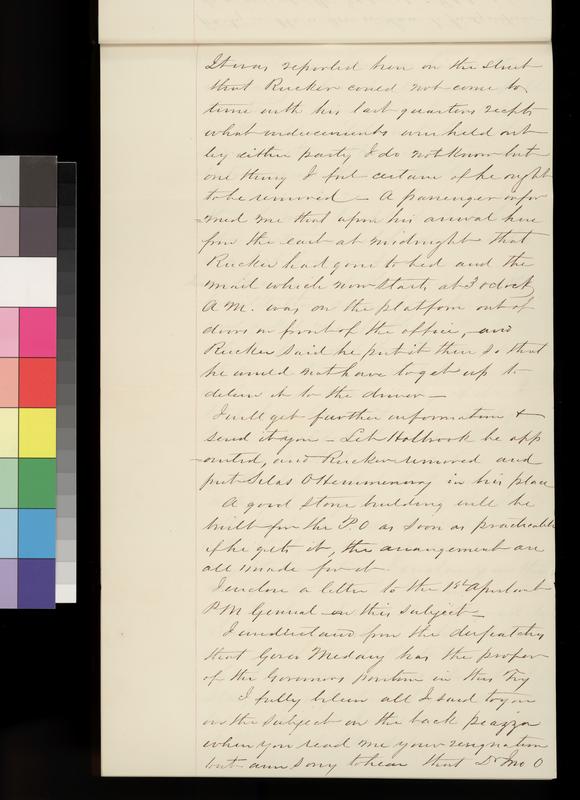 It was reported here on the street
that Rucker could not come to
time with his last quarters recpts
what inducements are held out
by either party I do not know but
one thing I feel certain of he ought
to be removed — A passenger infor
=med me that upon his arrival here
from the east at midnight that
Rucker had gone to bed and the
mail which now starts at 3 oclock
A M. was on the platform out of
doors in front of the office, and
Rucker said he put it there so that
he would not have to get up to
deliver it to the driver —
I will get further information &
send it you — Let Holbrook be app
-ointed, and Rucker removed and
put Silas O Hemmenway in his place
A good stone building will be
built for the P.O as soon as practicable
if he gets it, the arrangement are
all made for it
I enclose a letter to the 1st Assistant
P M General on this subject —
I understand from the despatches
that Gover Medary has the proffer
of the Governors position in this Try
I fully believe all I said to you
on the subject on the back peazza
when you read me your resignation
but am sorry to hear that Dr Jno O